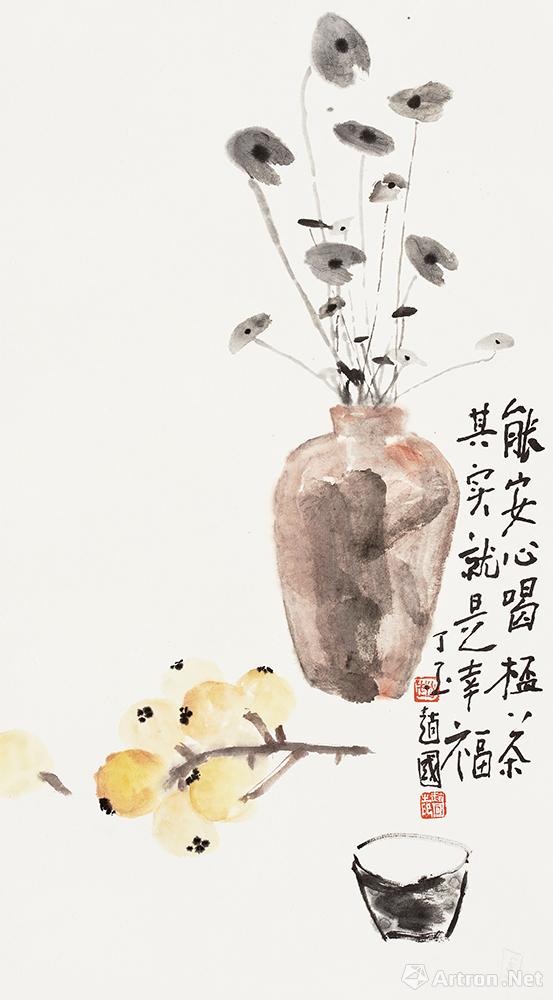 能安心喝杯茶
其实就是幸福
丁
趙國
Artron.Net